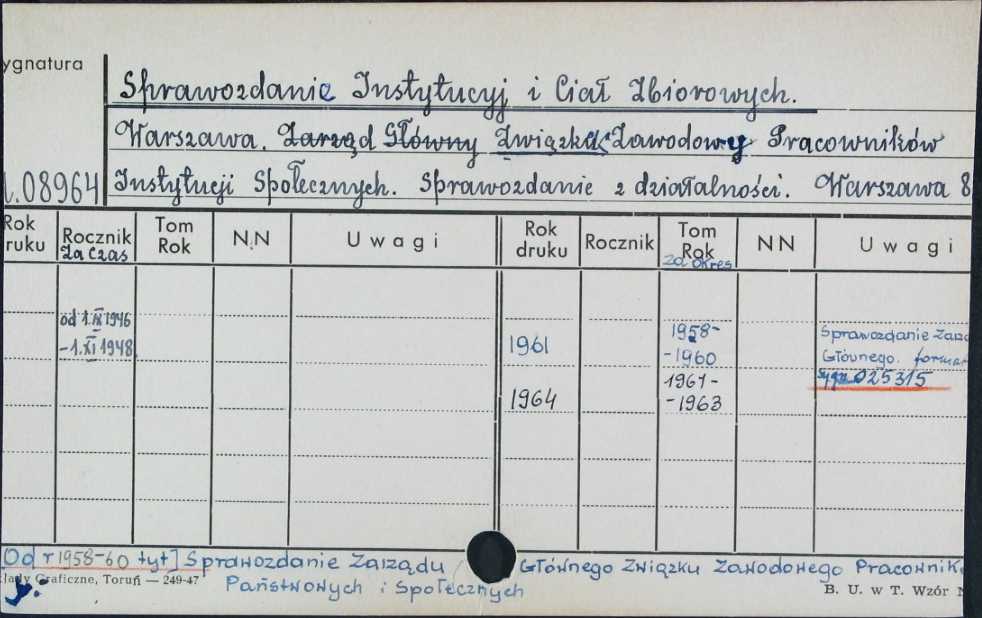 ygnatura
Sprawozdanie Instytucyj i Ciał Zbiorowych.
Warszawa. Zarząd Główny Związku Zawodowy Pracowników
08964 Instytucji Społecznych. Sprawozdanie z działalności. Warszawa 8
Rok ruku Rocznik Za czas Tom Rok N.N Uwagi Rok druku Rocznik Tom Rok za okres NN Uwagi
od 1.IX 1946
-1.XI 1948
1961 1958- -1960 Sprawozdanie Głównego.
sygn. 025315
1964 1961- -1963
Od r 1958-60 tyt] Sprawozdanie Zarządu Głównego Związku Zawodowego
Państwowych i Społecznych
łady Graficzne, Toruń — 249-47
B. U. w T. Wzór